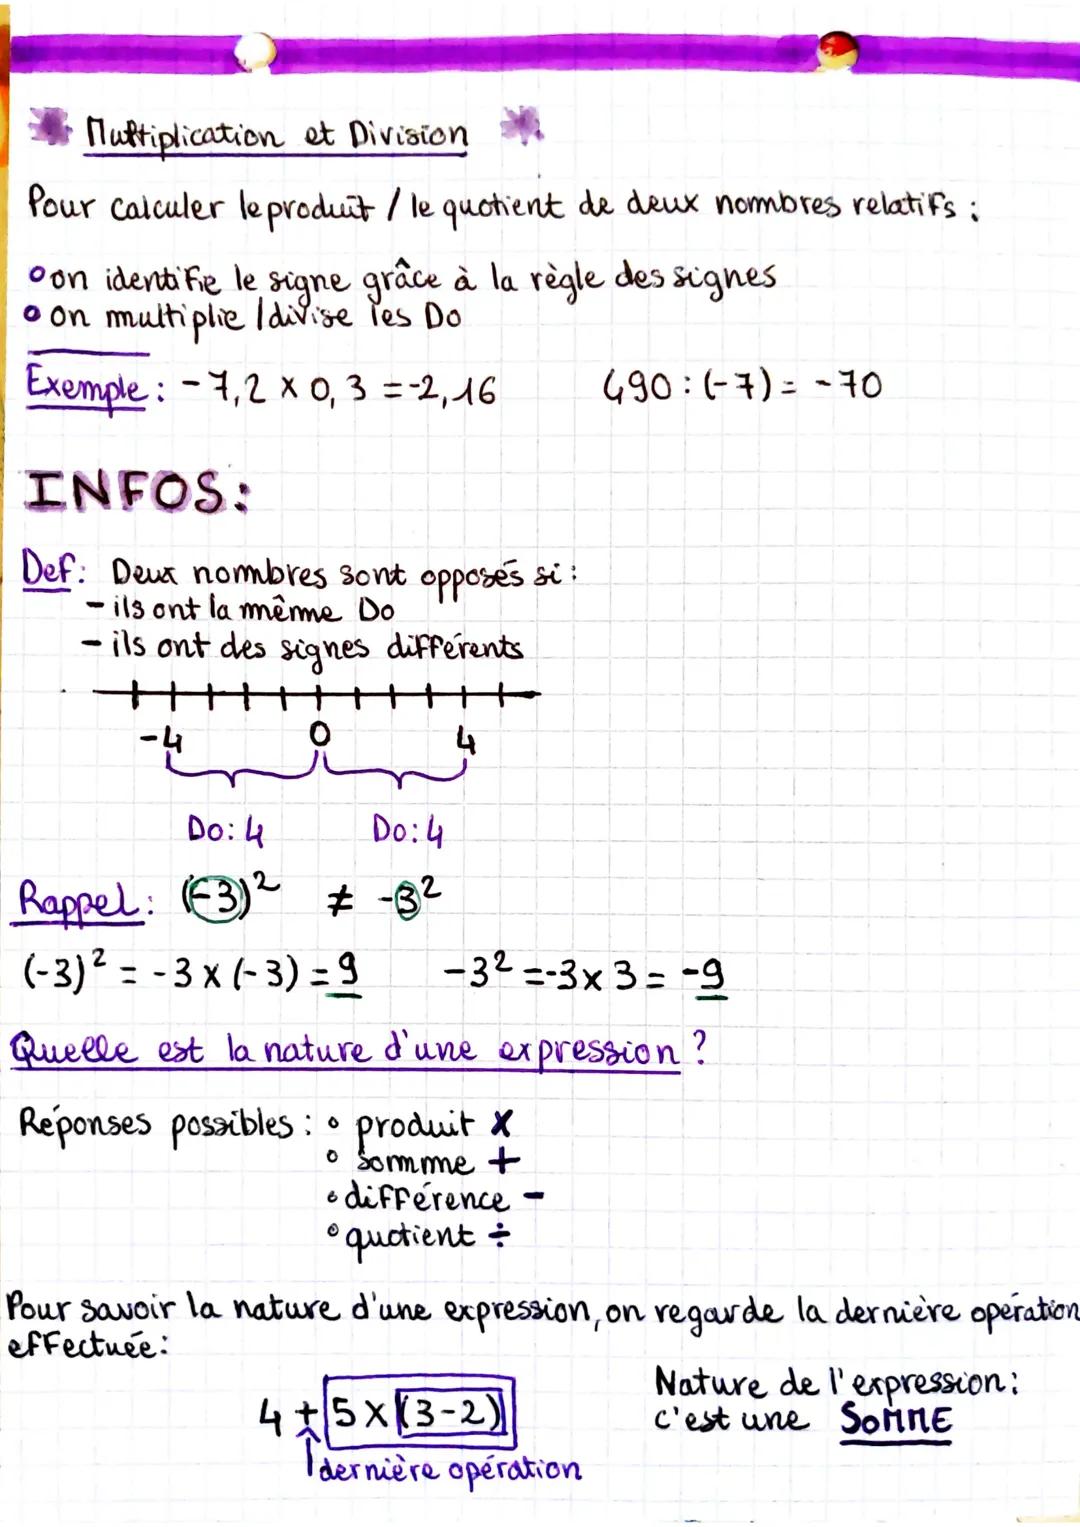 Multiplication et Division
Pour calculer le produit / le quotient de deux nombres relatifs :
on identifie le signe grâce à la règle des signes
on multiplie / divise les Do
Exemple : -7,2 x 0,3 = -2,16 490 : (-7) = -70
INFOS :
Def : Deux nombres sont opposés si :
- ils ont la même Do
- ils ont des signes différents
-4 0 4
Do : 4 Do : 4
Rappel : (-3)² ≠ -3²
(-3)² = -3 x (-3) = 9 -3² = -3 x 3 = -9
Quelle est la nature d'une expression ?
Réponses possibles : ° produit x
° somme +
° différence -
° quotient ÷
Pour savoir la nature d'une expression, on regarde la dernière opération
effectuée :
Nature de l'expression :
4 + 5 x (3-2) c'est une SOMME
dernière opération